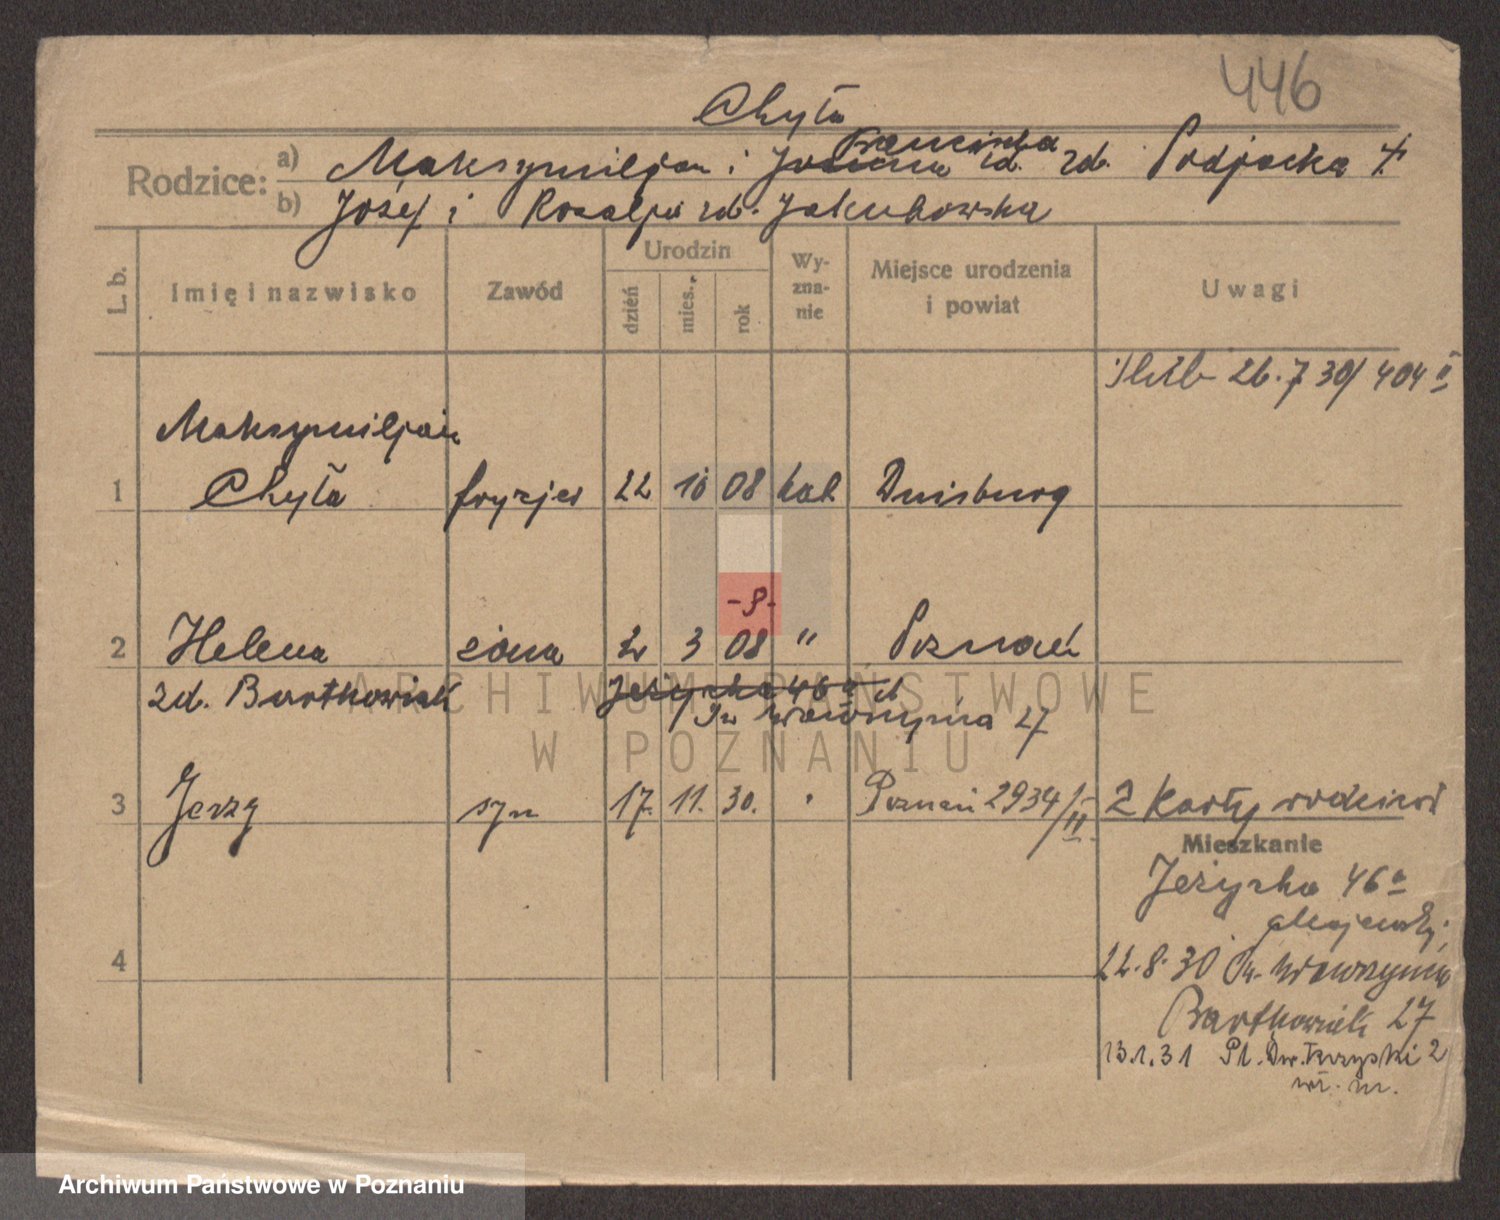 446
Chyła
Rodzice: a) Maksymiljan i Joanna Franciszka zd. zd. Podjacka †
b) Józef i Rozalja zd. Jakubowska
L. b. Imię i nazwisko Zawód Urodzin dzień mies. rok Wyznanie Miejsce urodzenia i powiat Uwagi
Ślub 26.7 30/404 II
Maksymiljan
1 Chyła fryzjer 22 10 08 kat Duisburg
-9-
2 Helena żona 2 3 08 " Poznań
zd. Bartkowiak Jeżycka 46a
Św Wawrzyńca 27
3 Jerzy syn 17. 11. 30. " Poznań 2934/II 2 karty rodziców
Mieszkanie
Jeżycka 46a
4 22.8.30 Św. Wawrzyńca
Bartkowiak 27
13.1.31 Pl. Dw. 2
wł. m.
ARCHIWUM PAŃSTWOWE
W POZNANIU
Archiwum Państwowe w Poznaniu